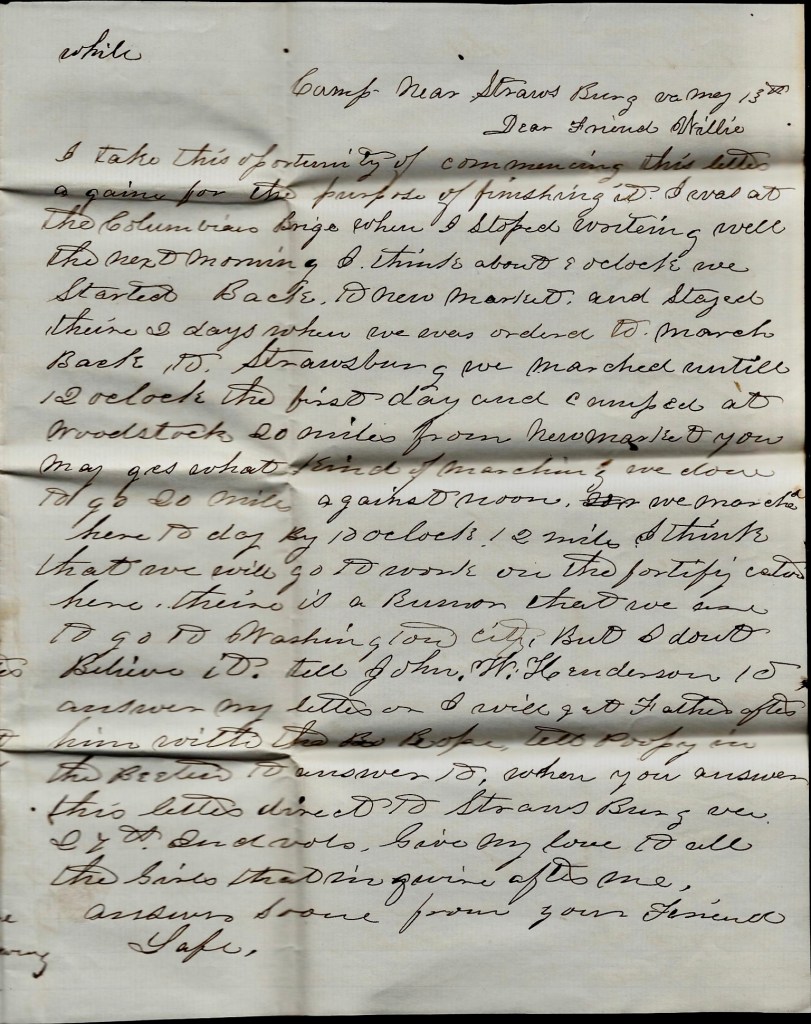 while
Camp Near Straws Burg va May 13th
Dear Friend Willie
I take this oportunity of commencing this letter
a gaine for the purpose of finishing it. I was at
the Columbian Brige when I Stoped writeing well
the next morning I. think about 8 oclock we
Started Back. to New Market. and Stayed
theire 2 days when we was orderd to. march
Back to. Strawsburg we marched untill
12 oclock the first day and camped at
Woodstock 20 miles from New market you
may ges what kind of marching we done
to go 20 miles against noon. we march'd
here to day By 10 oclock 12 mile I think
that we will go to work on the fortify cation
here. theire is a Rumor that we are
to go to Washington city. But I dont
Believe it. tell John. W. Henderson to
answer my letter or I will get Father after
him with the Rope, tell in
the to answer to, when you answer
this letter direct to Straws Burg va.
27th. Ind vols. Give my love to all
the Girls that in quire after me,
answer soone from your Friend
Lafe.